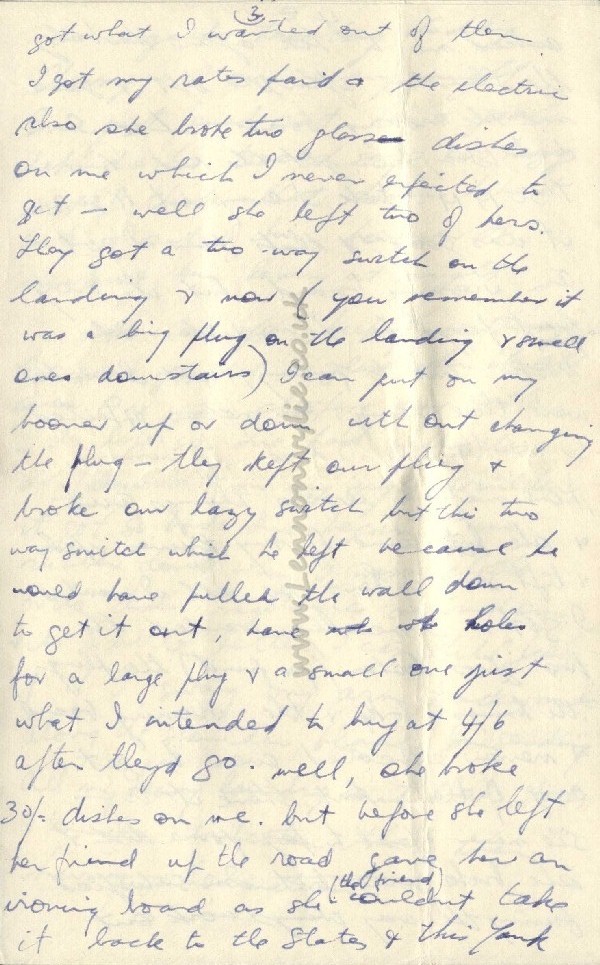 3
got what I wanted out of them
I got my rates paid & the electric
also she broke two glass dishes
on me which I never expected to
get — well she left two of hers.
They got a two-way switch on the
landing & now (you remember it
was a big plug on the landing & small
ones downstairs) I can put on my
hoover up or down without changing
the plug — they kept our plug &
broke our lazy switch but this two
way switch which he left because he
would have pulled the wall down
to get it out, have holes
for a large plug & a small one just
what I intended to buy at 4/6
after Lloyd go. well, she broke
30/= dishes on me. but before she left
her friend up the road gave her an
ironing board as she (the friend) couldn't take
it back to the States & this Yank
www.Lennon co.uk